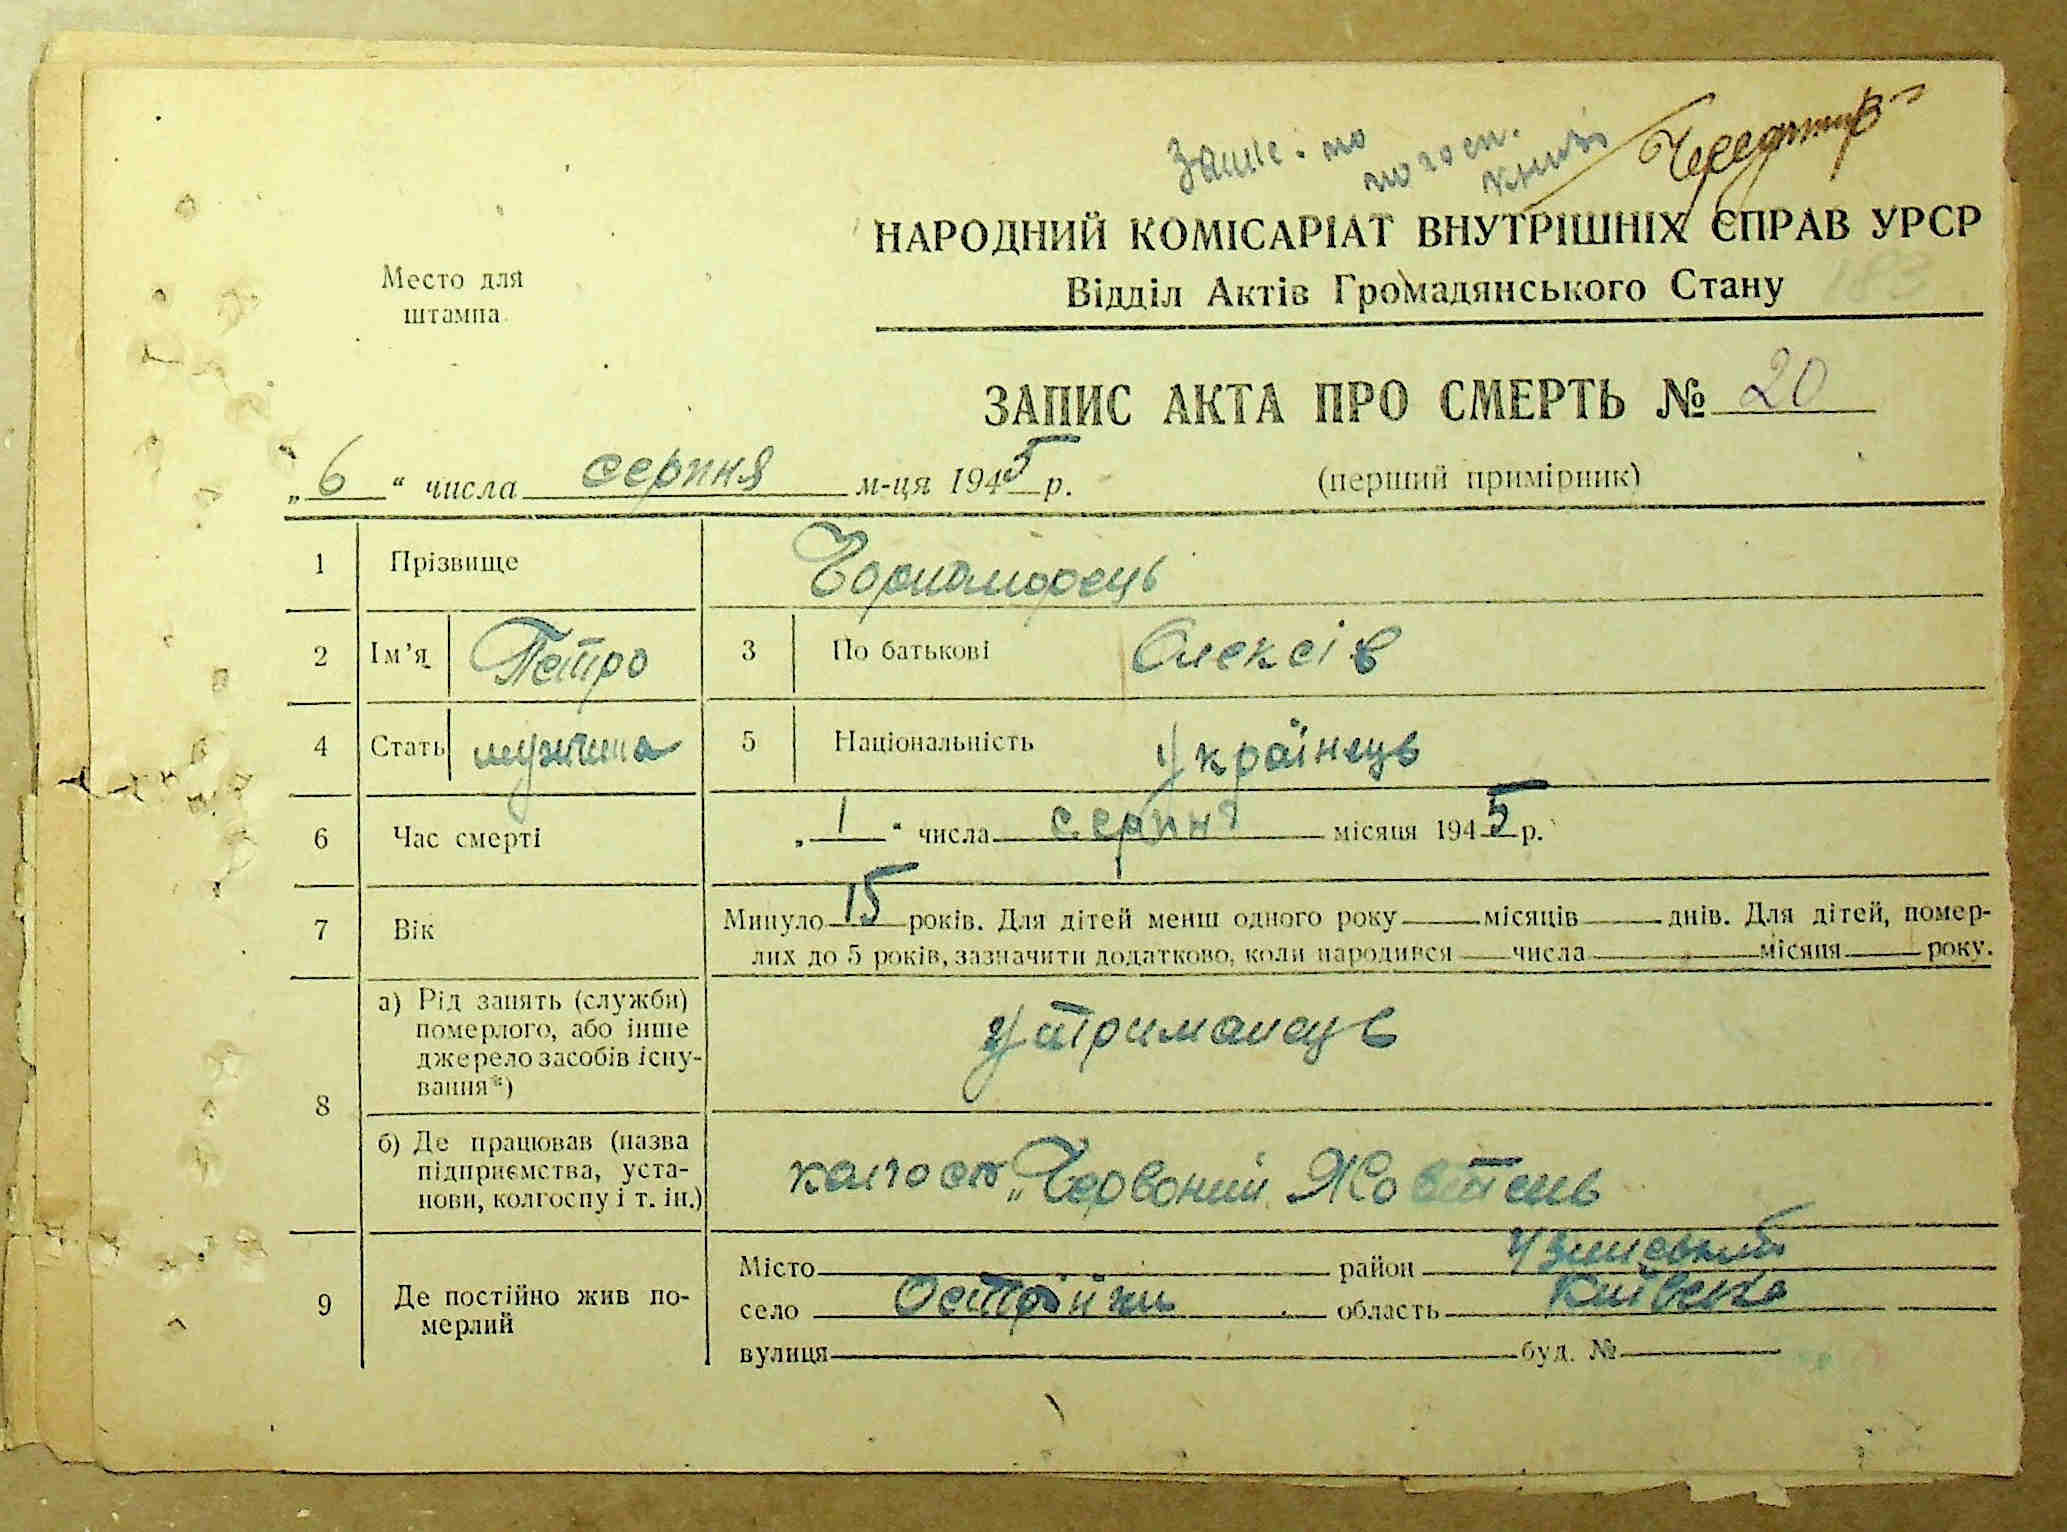 Запис. по
погосп.
книзі
НАРОДНИЙ КОМІСАРІАТ ВНУТРІШНІХ СПРАВ УРСР
Відділ Актів Громадянського Стану
183
Место для
штампа
ЗАПИС АКТА ПРО СМЕРТЬ № 20
„6“ числа серпня м-ця 1945 р. (перший примірник)
1 Прізвище Чорноморець
2 Ім’я Петро 3 По батькові Олексів
4 Стать мужчина 5 Національність Українець
6 Час смерті „1“ числа серпня місяця 1945 р.
7 Вік Минуло 15 років. Для дітей менш одного року місяців днів. Для дітей, помер-
лих до 5 років, зазначити додатково, коли народився числа місяця року.
8 а) Рід занять (служби)
померлого, або інше
джерело засобів існу-
вання*) Утриманець
б) Де працював (назва
підприємства, уста-
нови, колгоспу і т. ін.) колгосп „Червоний Жовтень
9 Де постійно жив по-
мерлий
Місто район Узинський
село Острійки область Київська
вулиця буд. №